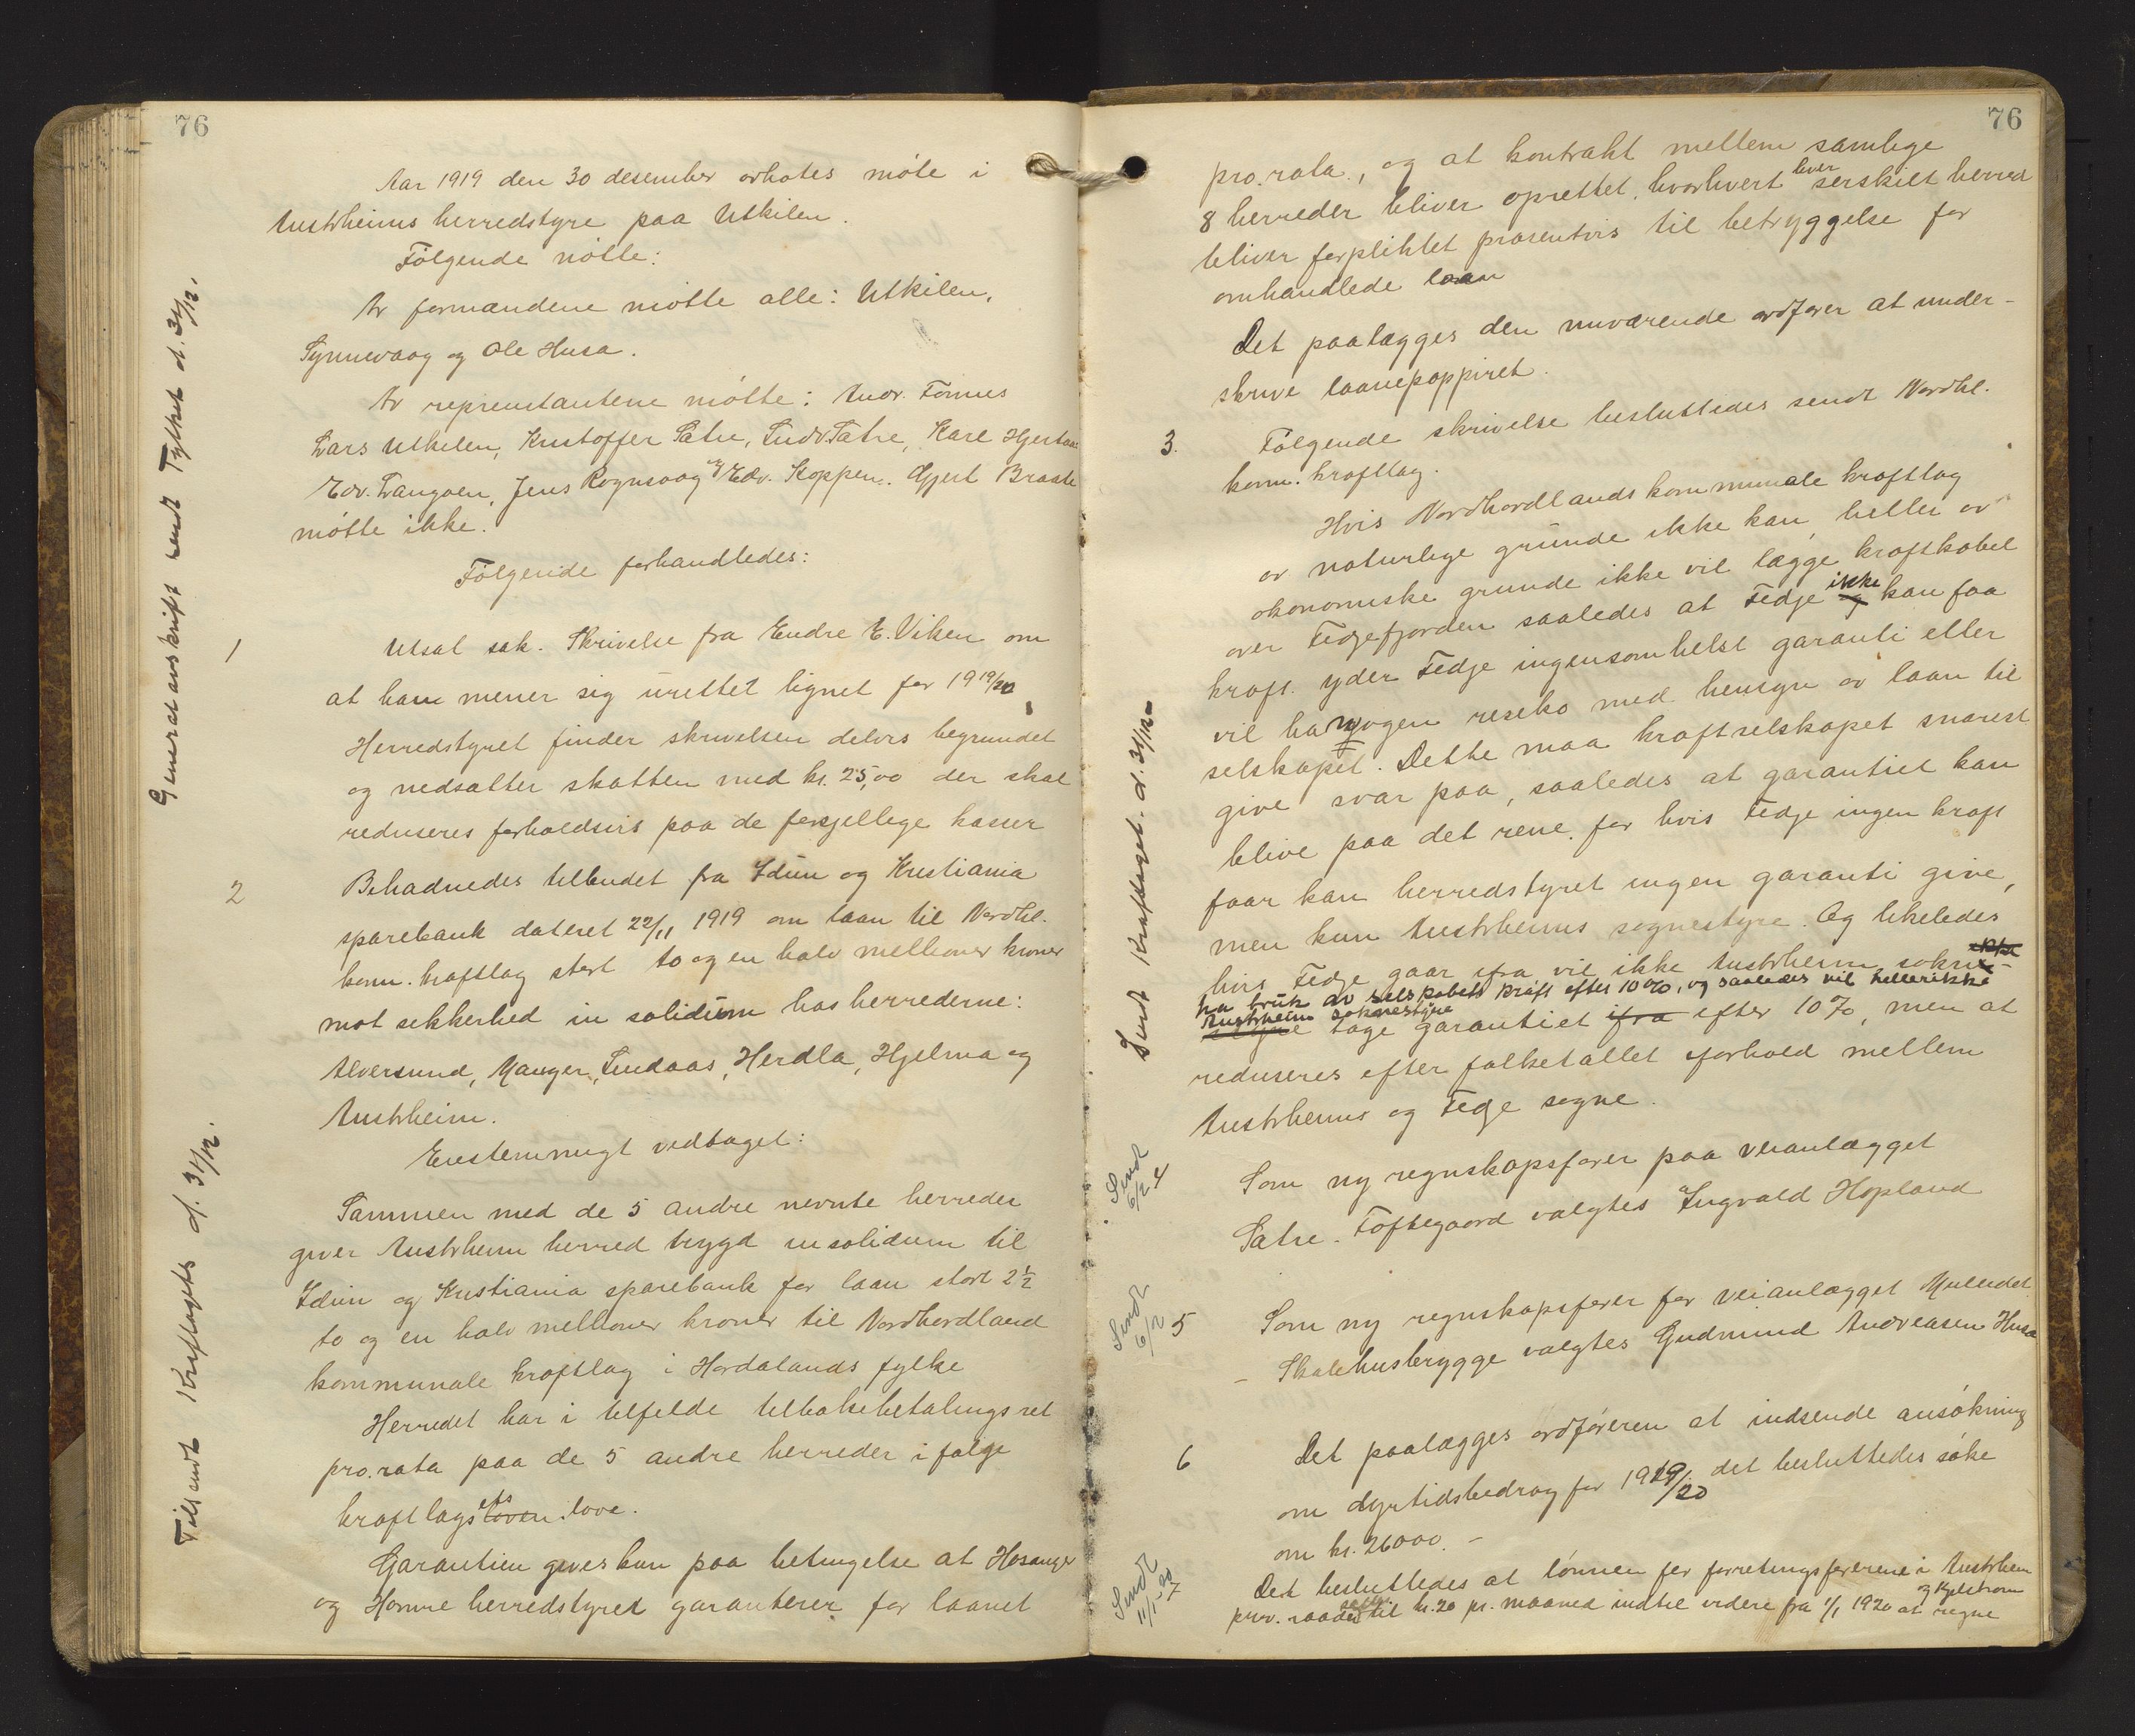 76
Aar 1919 den 30 desember avhotes möte i
Austrheims herredstyre paa Utkilen.
Fölgende mötte:
Av formændene mötte alle: Utkilen,
Synnevaag og Ole Husa.
Av representantene mötte: Andr. Fonnes
Lars Utkilen, Kristoffer Sætre, Ludv. Sætre, Karl Hjertaas
Edv. Langöen, Jens Rognsvaag og Edv. Stoppen. Gjert Braste
mötte ikke.
Fölgende forhandledes:
1
Utsat sak. Skrivelse fra Endre E. Viken om
at han mener sig urettet lignet for 1919/20
Herredstyret finder skrivelsen delvis begrundet
og nedsætter skatten med kr. 25,00 der skal
reduseres forholdsvis paa de forsjellige kasser
2
Behadnedes tilbudet fra Idun og Kristiania
sparebank dateret 22/11 1919 om laan til Nordhl.
kom. kraftlag stort to og en halv millioner kroner
mot sikkerhed in solidum hos herrederne:
Alversund, Manger, Lindaas, Herdla, Hjelma og
Austrheim.
Enstemmigt vedtaget:
Sammen med de 5 andre nevnte herreder
giver Austrheim herred trygd in solidum til
Idun og Kristiania sparebank for laan stort 2½
to og en halv millioner kroner til Nordhordland
kommunale kraftlag i Hordalands fylke
Herredet har i tilfelde tilbakebetalingsret
pro.rata paa de 5 andre herreder i fölge
kraftlagsloven ets love.
Garantien gives kun paa betingelse at Hosanger
og Hamre herredstyret garanterer for laanet
Generalavskrift sendt Fylket d. 31/12.
Tilsendt Kraftlaget d. 31/12.
76
pro.rata., og at kontrakt mellem samlige
8 herreder bliver oprettet, hvorhvert hver serskilt herred
bliver forpliktet prosentvis til betryggelse for
omhandlede laan
Det paalægges den nuværende ordfører at under-
skrive laanepappiret.
3.
Fölgende skrivelse besluttedes sendt Nordhl.
kom. kraftlag.
Hvis Nordhordlands kommunale kraftlag
av naturlige grunde ikke kan, heller av
økonomiske grunde ikke vil lægge kraftkabel
over Fedjefjorden saaledes at Fedje og ikke kan faa
kraft. yder Fedje ingensomhelst garanti eller
vil ha nogen reseko med hensyn av laan til
selskapet. Dette maa kraftselskapet snarest
give svar paa, saaledes at garantiet kan
blive paa det rene. for hvis Fedje ingen kraft
faar kan herredstyret ingen garanti give,
men kun Austrheims sognestyre. Og likeledes
hvis Fedje gaar ifra vil ikke Austrheim sokn
ha bruk av selskabets kraft efter 100%, og saaledes vil hellerikke
Austrheim soknestyre tage garantiet ifra efter 10%, men at
reduseres efter folketallet iforhold mellem
Austrheims og Fedje sogne.
Sendt Kraftlaget. d. 31/12
Sendt 6/2 4
Som ny regnskapsfører paa veianlægget
Sætre. Toftegaard valgtes Ingvald Hopland
Sendt 6/2 5
Som ny regnskapsfører for veianlægget Myledet
- Skalehusbrygge valgtes Gudmund Andreasen Husa
6
Det paalægges ordföreren at indsende ansökning
om dyrtidsbedrag for 1919/20 det besluttedes söke
om kr. 26000.-
Sendt 11/1-20 7
Det besluttedes at lönnen for forretningsførerene i Austrheim og Kjelstraum
prov. raader sættes til kr. 20 pr. maaned indtil videre fra 1/1 1920 at regne